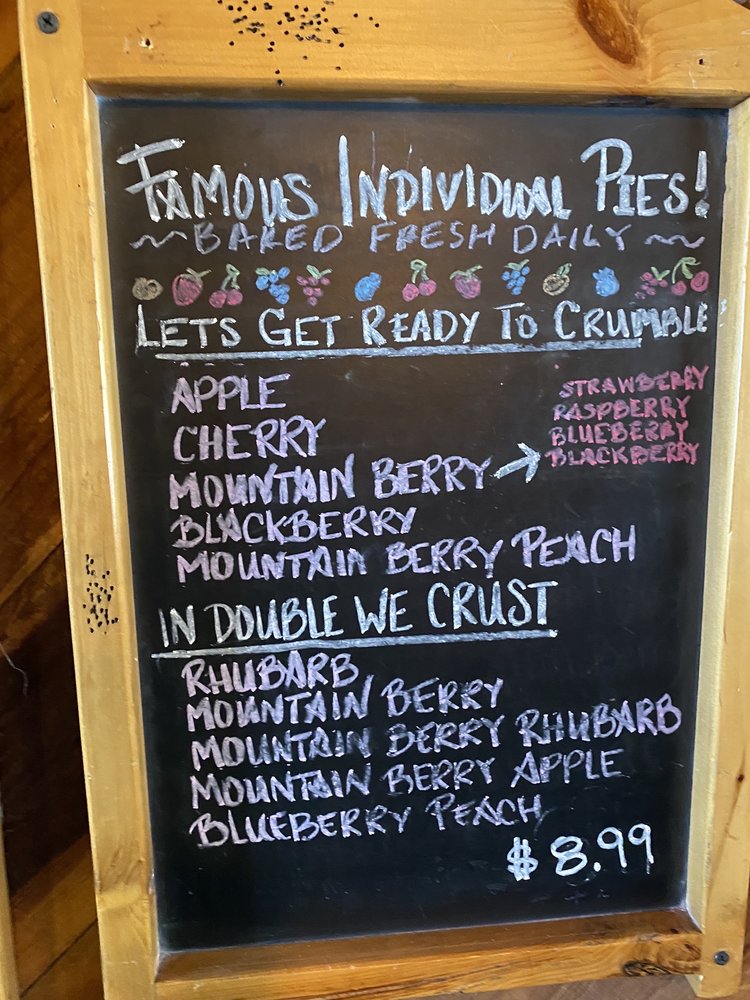 FAMOUS INDIVIDUAL PIES!
~BAKED FRESH DAILY~
LETS GET READY TO CRUMBLE
APPLE
CHERRY
MOUNTAIN BERRY →
STRAWBERRY
RASPBERRY
BLUEBERRY
BLACKBERRY
BLACKBERRY
MOUNTAIN BERRY PEACH
IN DOUBLE WE CRUST
RHUBARB
MOUNTAIN BERRY
MOUNTAIN BERRY RHUBARB
MOUNTAIN BERRY APPLE
BLUEBERRY PEACH
$8.99